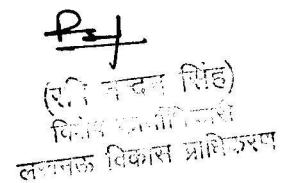 (रवि नन्दन सिंह)
विशेष कार्याधिकारी
लखनऊ विकास प्राधिकरण